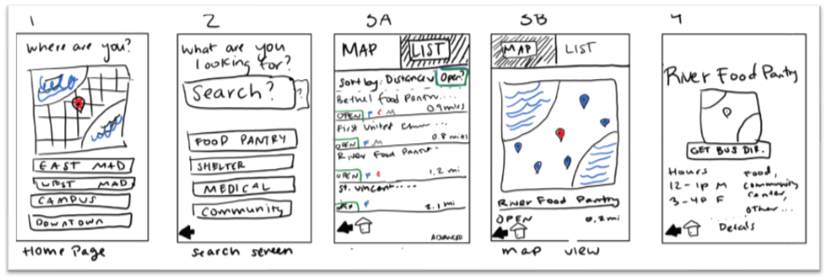 1
where are you?
EAST MAD
WEST MAD
CAMPUS
DOWNTOWN
Home Page
2
what are you
looking for?
Search?
?
FOOD PANTRY
SHELTER
MEDICAL
Community
search screen
3A
MAP
LIST
Sort by: Distance
Open?
Bethel Food Pantry...
OPEN P C M
0.9 miles
First United Chur...
OPEN P M
0.8 miles
River Food Pantr..
OPEN P C
1.2 mi
St. Vincent....
2.1 mi
ADVANCED
3B
MAP
LIST
River Food Pantry
OPEN
0.2 mi
map view
4
River Food Pantry
GET BUS DIR.
Hours
12-1P M
3-4P F
Food,
community
center,
other...
Details